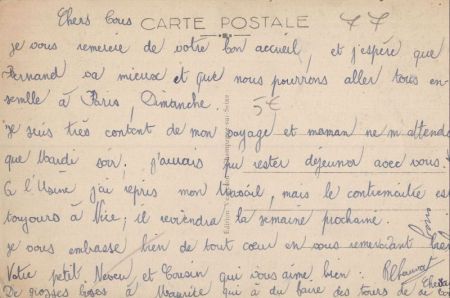 Chers Tous
CARTE POSTALE
77
je vous remercie de votre bon accueil, et j'espère que
Fernand va mieux et que nous pourrons aller tous en-
semble à Paris, Dimanche.
5€
je suis très content de mon voyage et maman ne m'attenda
que Mardi soir. j'aurais pu rester déjeuner avec vous.
A l'Usine j'ai repris mon travail, mais le contremaitre es
toujours à Nice; il reviendra la semaine prochaine.
je vous embrasse bien de tout cœur en vous remerciant bien
Votre petit Neveu et Cousin qui vous aime bien.
De grosses bises à qui a du faire des tours de